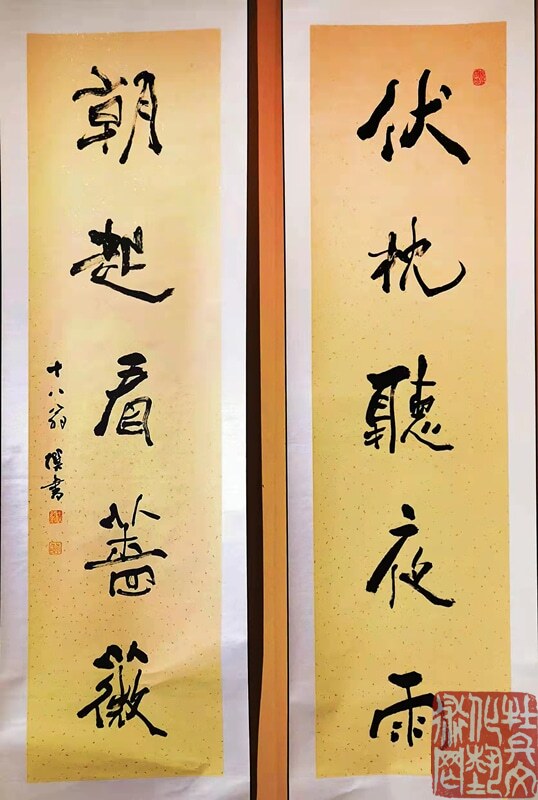 伏枕聽夜雨
朝起看薔薇
十八翁 撰書